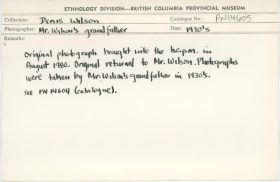 ETHNOLOGY DIVISION—BRITISH COLUMBIA PROVINCIAL MUSEUM
Collection: Denis Wilson Catalogue No.: PN14605
Photographer: Mr. Wilson's grandfather Date: 1930's
Remarks:
Original photograph brought into the b.c.p.m. in
August 1980. Original returned to Mr. Wilson. Photographs
were taken by Mr. Wilson's grandfather in 1930's.
see PN 14604 (catalogue).